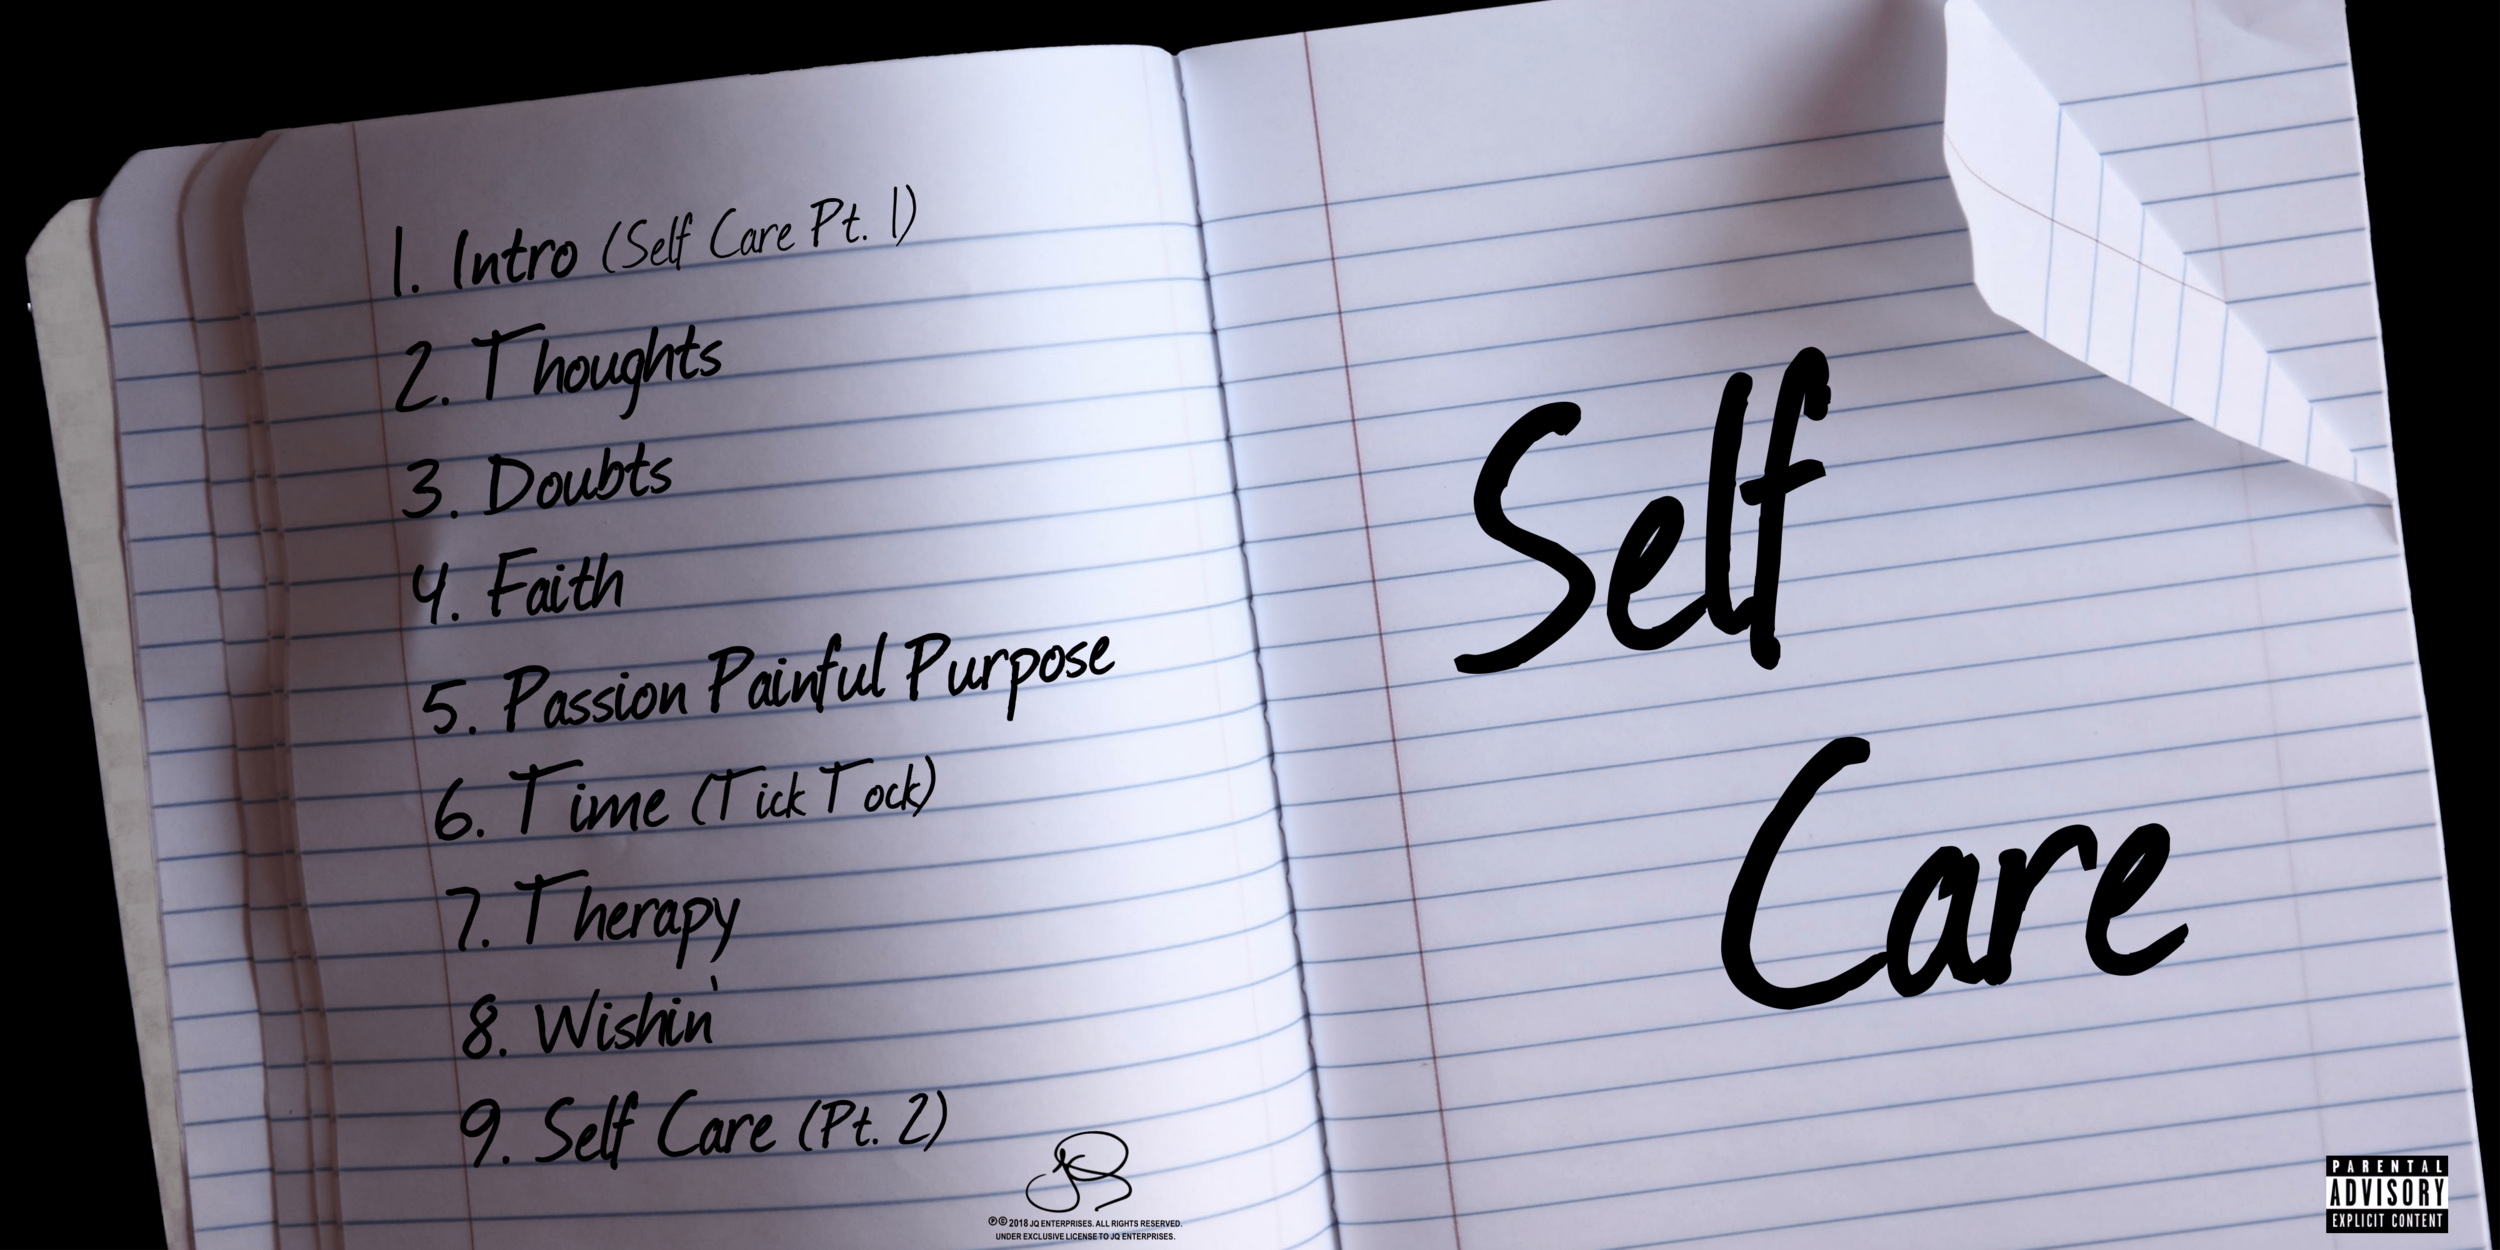 1. Intro (Self Care Pt. 1)
2. Thoughts
3. Doubts
4. Faith
5. Passion Painful Purpose
6. Time (Tick Tock)
7. Therapy
8. Wishin'
9. Self Care (Pt. 2)
℗ © 2018 JQ ENTERPRISES. ALL RIGHTS RESERVED.
UNDER EXCLUSIVE LICENSE TO JQ ENTERPRISES.
Self
Care
PARENTAL
ADVISORY
EXPLICIT CONTENT